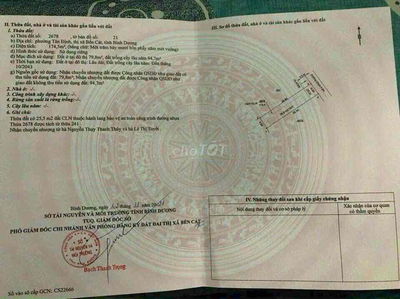 II. Thửa đất, nhà ở và tài sản khác gắn liền với đất
1. Thửa đất:
a) Thửa đất số: 2678 , tờ bản đồ số: 21
b) Địa chỉ: phường Tân Định, thị xã Bến Cát, tỉnh Bình Dương
c) Diện tích: 174,5m², (bằng chữ: Một trăm bảy mươi bốn phẩy năm mét vuông)
d) Hình thức sử dụng: Sử dụng riêng
đ) Mục đích sử dụng: Đất ở tại đô thị 79,8m²; Đất trồng cây lâu năm 94,7m²
e) Thời hạn sử dụng: Đất ở tại đô thị: Lâu dài; Đất trồng cây lâu năm: Đến tháng
10/2043
g) Nguồn gốc sử dụng: Nhận chuyển nhượng đất được Công nhận QSDĐ như giao đất có
thu tiền sử dụng đất: 79,8m²; Nhận chuyển nhượng đất được Công nhận QSDĐ như giao
đất không thu tiền sử dụng đất: 94,7m²
2. Nhà ở: -/-
3. Công trình xây dựng khác: -/-
4. Rừng sản xuất là rừng trồng: -/-
5. Cây lâu năm: -/-
6. Ghi chú:
Thửa đất có 25,5 m² đất CLN thuộc hành lang bảo vệ an toàn công trình đường nhựa
Thửa 2678 được tách từ thửa 241
Nhận chuyển nhượng từ bà Nguyễn Thụy Thanh Thủy và bà Lê Thị Tuyết
III. Sơ đồ thửa đất, nhà ở và tài sản khác gắn liền với đất
chợTỐT
Bình Dương,
SỞ TÀI NGUYÊN VÀ MÔI TRƯỜNG TỈNH BÌNH DƯƠNG
TUQ. GIÁM ĐỐC SỞ
PHÓ GIÁM ĐỐC CHI NHÁNH VĂN PHÒNG ĐĂNG KÝ ĐẤT ĐAI THỊ XÃ BẾN CÁT
Bạch Thanh Trọng
Số vào sổ cấp GCN: CS22666
IV. Những thay đổi sau khi cấp giấy chứng nhận
Nội dung thay đổi và cơ sở pháp lý
Xác nhận của cơ quan
có thẩm quyền